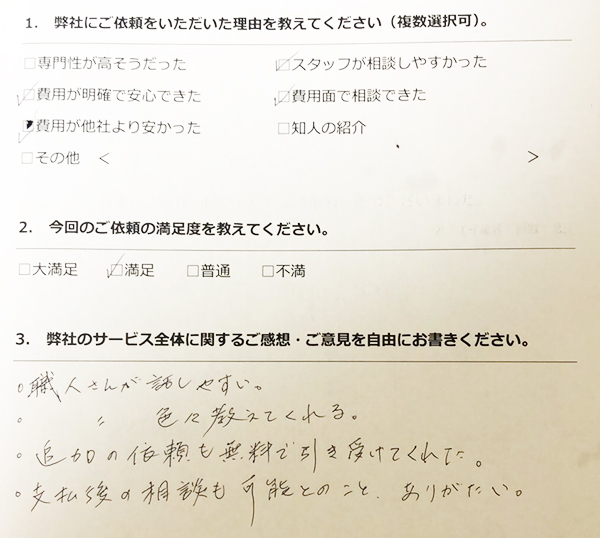 1. 弊社にご依頼をいただいた理由を教えてください（複数選択可）。
□専門性が高そうだった ☑スタッフが相談しやすかった
☑費用が明確で安心できた ☑費用面で相談できた
☑費用が他社より安かった □知人の紹介
□その他 < >
2. 今回のご依頼の満足度を教えてください。
□大満足 ☑満足 □普通 □不満
3. 弊社のサービス全体に関するご感想・ご意見を自由にお書きください。
○職人さんが話しやすい。
・ 〃 色々教えてくれる。
○追加の依頼も無料で引き受けてくれた。
○支払後の相談も可能とのこと、ありがたい。